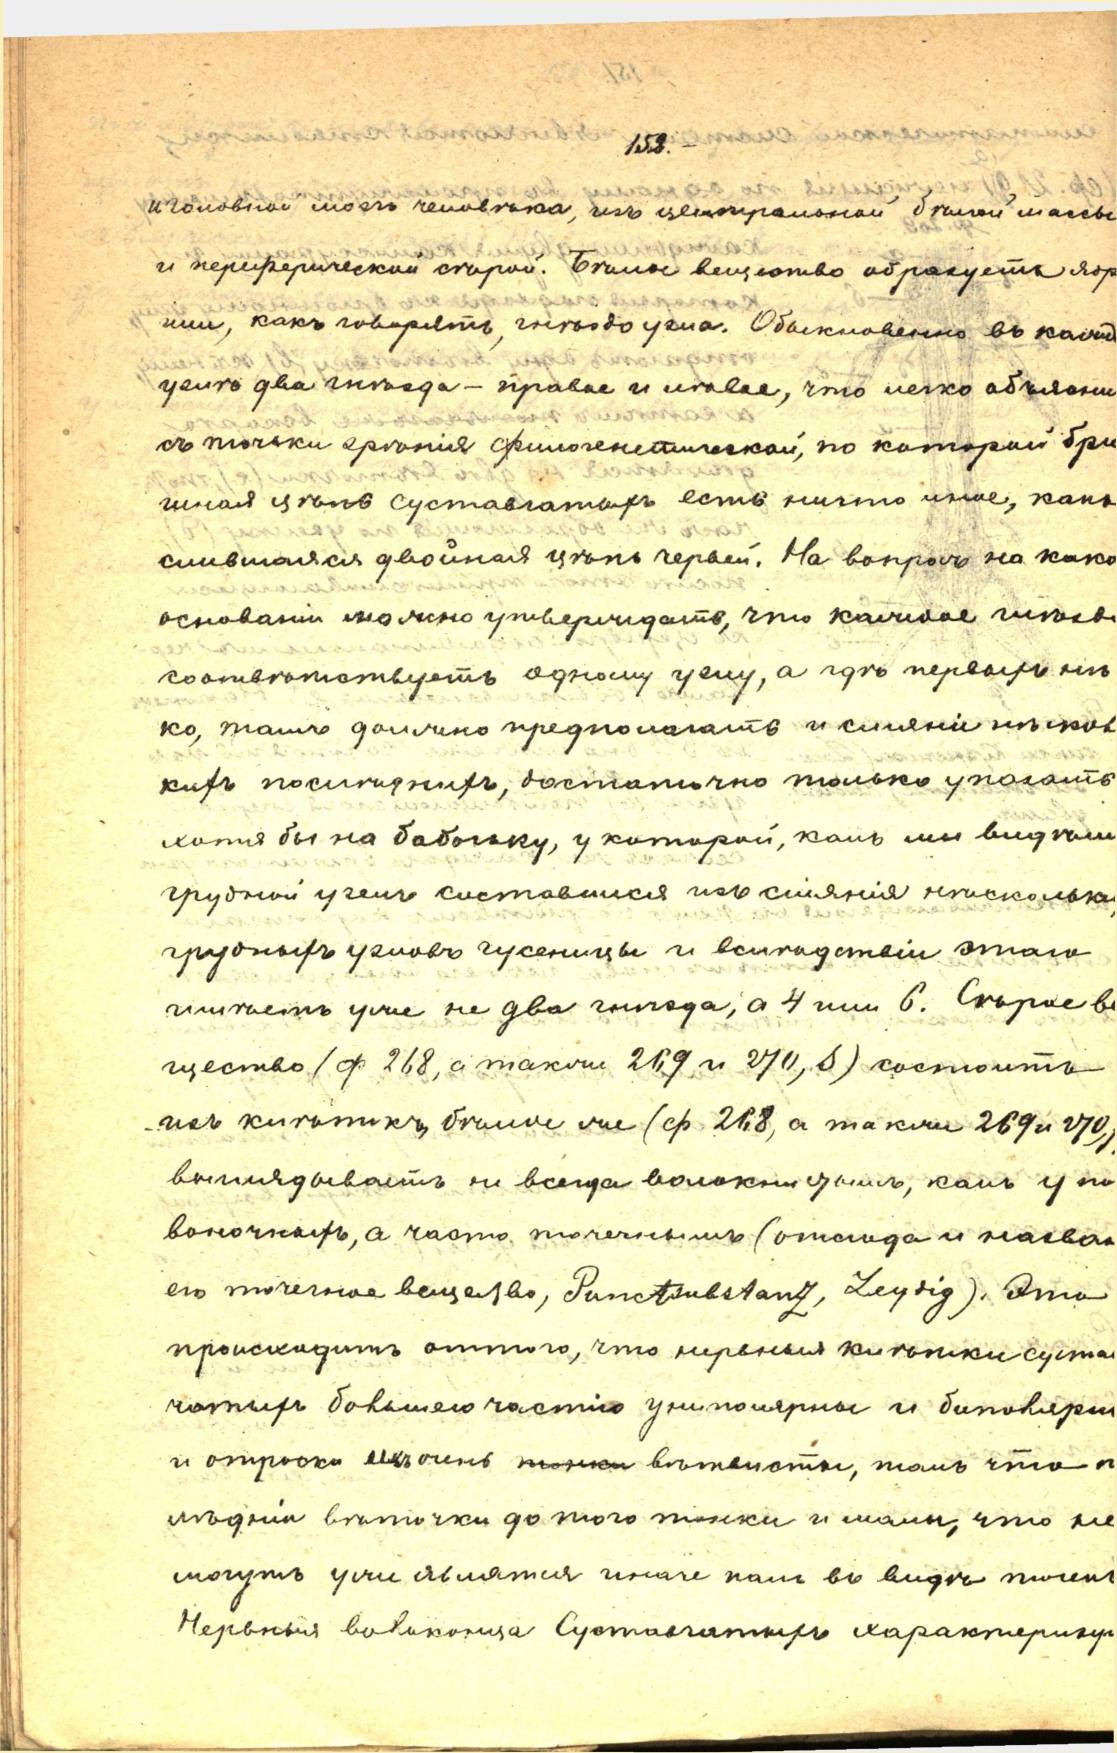 158.
и головной мозгъ человѣка, изъ центральной бѣлой массы
и периферической сѣрой. Бѣлое вещество образуетъ ядр
или, какъ говорятъ, гнѣздо узла. Обыкновенно въ кажд
узлѣ два гнѣзда – правое и лѣвое, что легко объясни
съ точки зрѣнія филогенетической, по которой брю
шная цѣпь суставчатыхъ есть ничто иное, какъ
слившаяся двойная цѣпь червей. На вопросъ на како
основаніи можно утверждать, что каждое гнѣздо
соотвѣтствуетъ одному узлу, а гдѣ первыхъ нѣ
ко, тамъ должно предполагать и сліяніе нѣскол
кихъ послѣднихъ, достаточно только указать
хотя бы на бабочку, у которой, какъ мы видѣли
грудной узелъ составился изъ сліянія нѣсколькихъ
грудныхъ узловъ гусеницы и вслѣдствіи этого
имѣетъ уже не два гнѣзда, а 4 или 6. Сѣрое ве
щество (ф 268, а также 269 и 270, б) состоитъ
изъ клѣтикъ, бѣлое же (ф. 268, а также 269 и 270,
выглядываетъ не всегда волокнистымъ, какъ у по
воночныхъ, а часто точечнымъ (отсюда и назван
его точечное вещество, Punctsubstanz, Leydig). Это
происходитъ оттого, что нервныя клѣтки суста
чатыхъ большею частію униполярны и биполярны
и отростки ихъ очень тонки вѣтвисты, такъ что п
лѣднія вѣточки до того тонки и малы, что не
могутъ уже являтся иначе какъ въ видѣ точекъ
Нервныя волоконца Суставчатыхъ характеризу